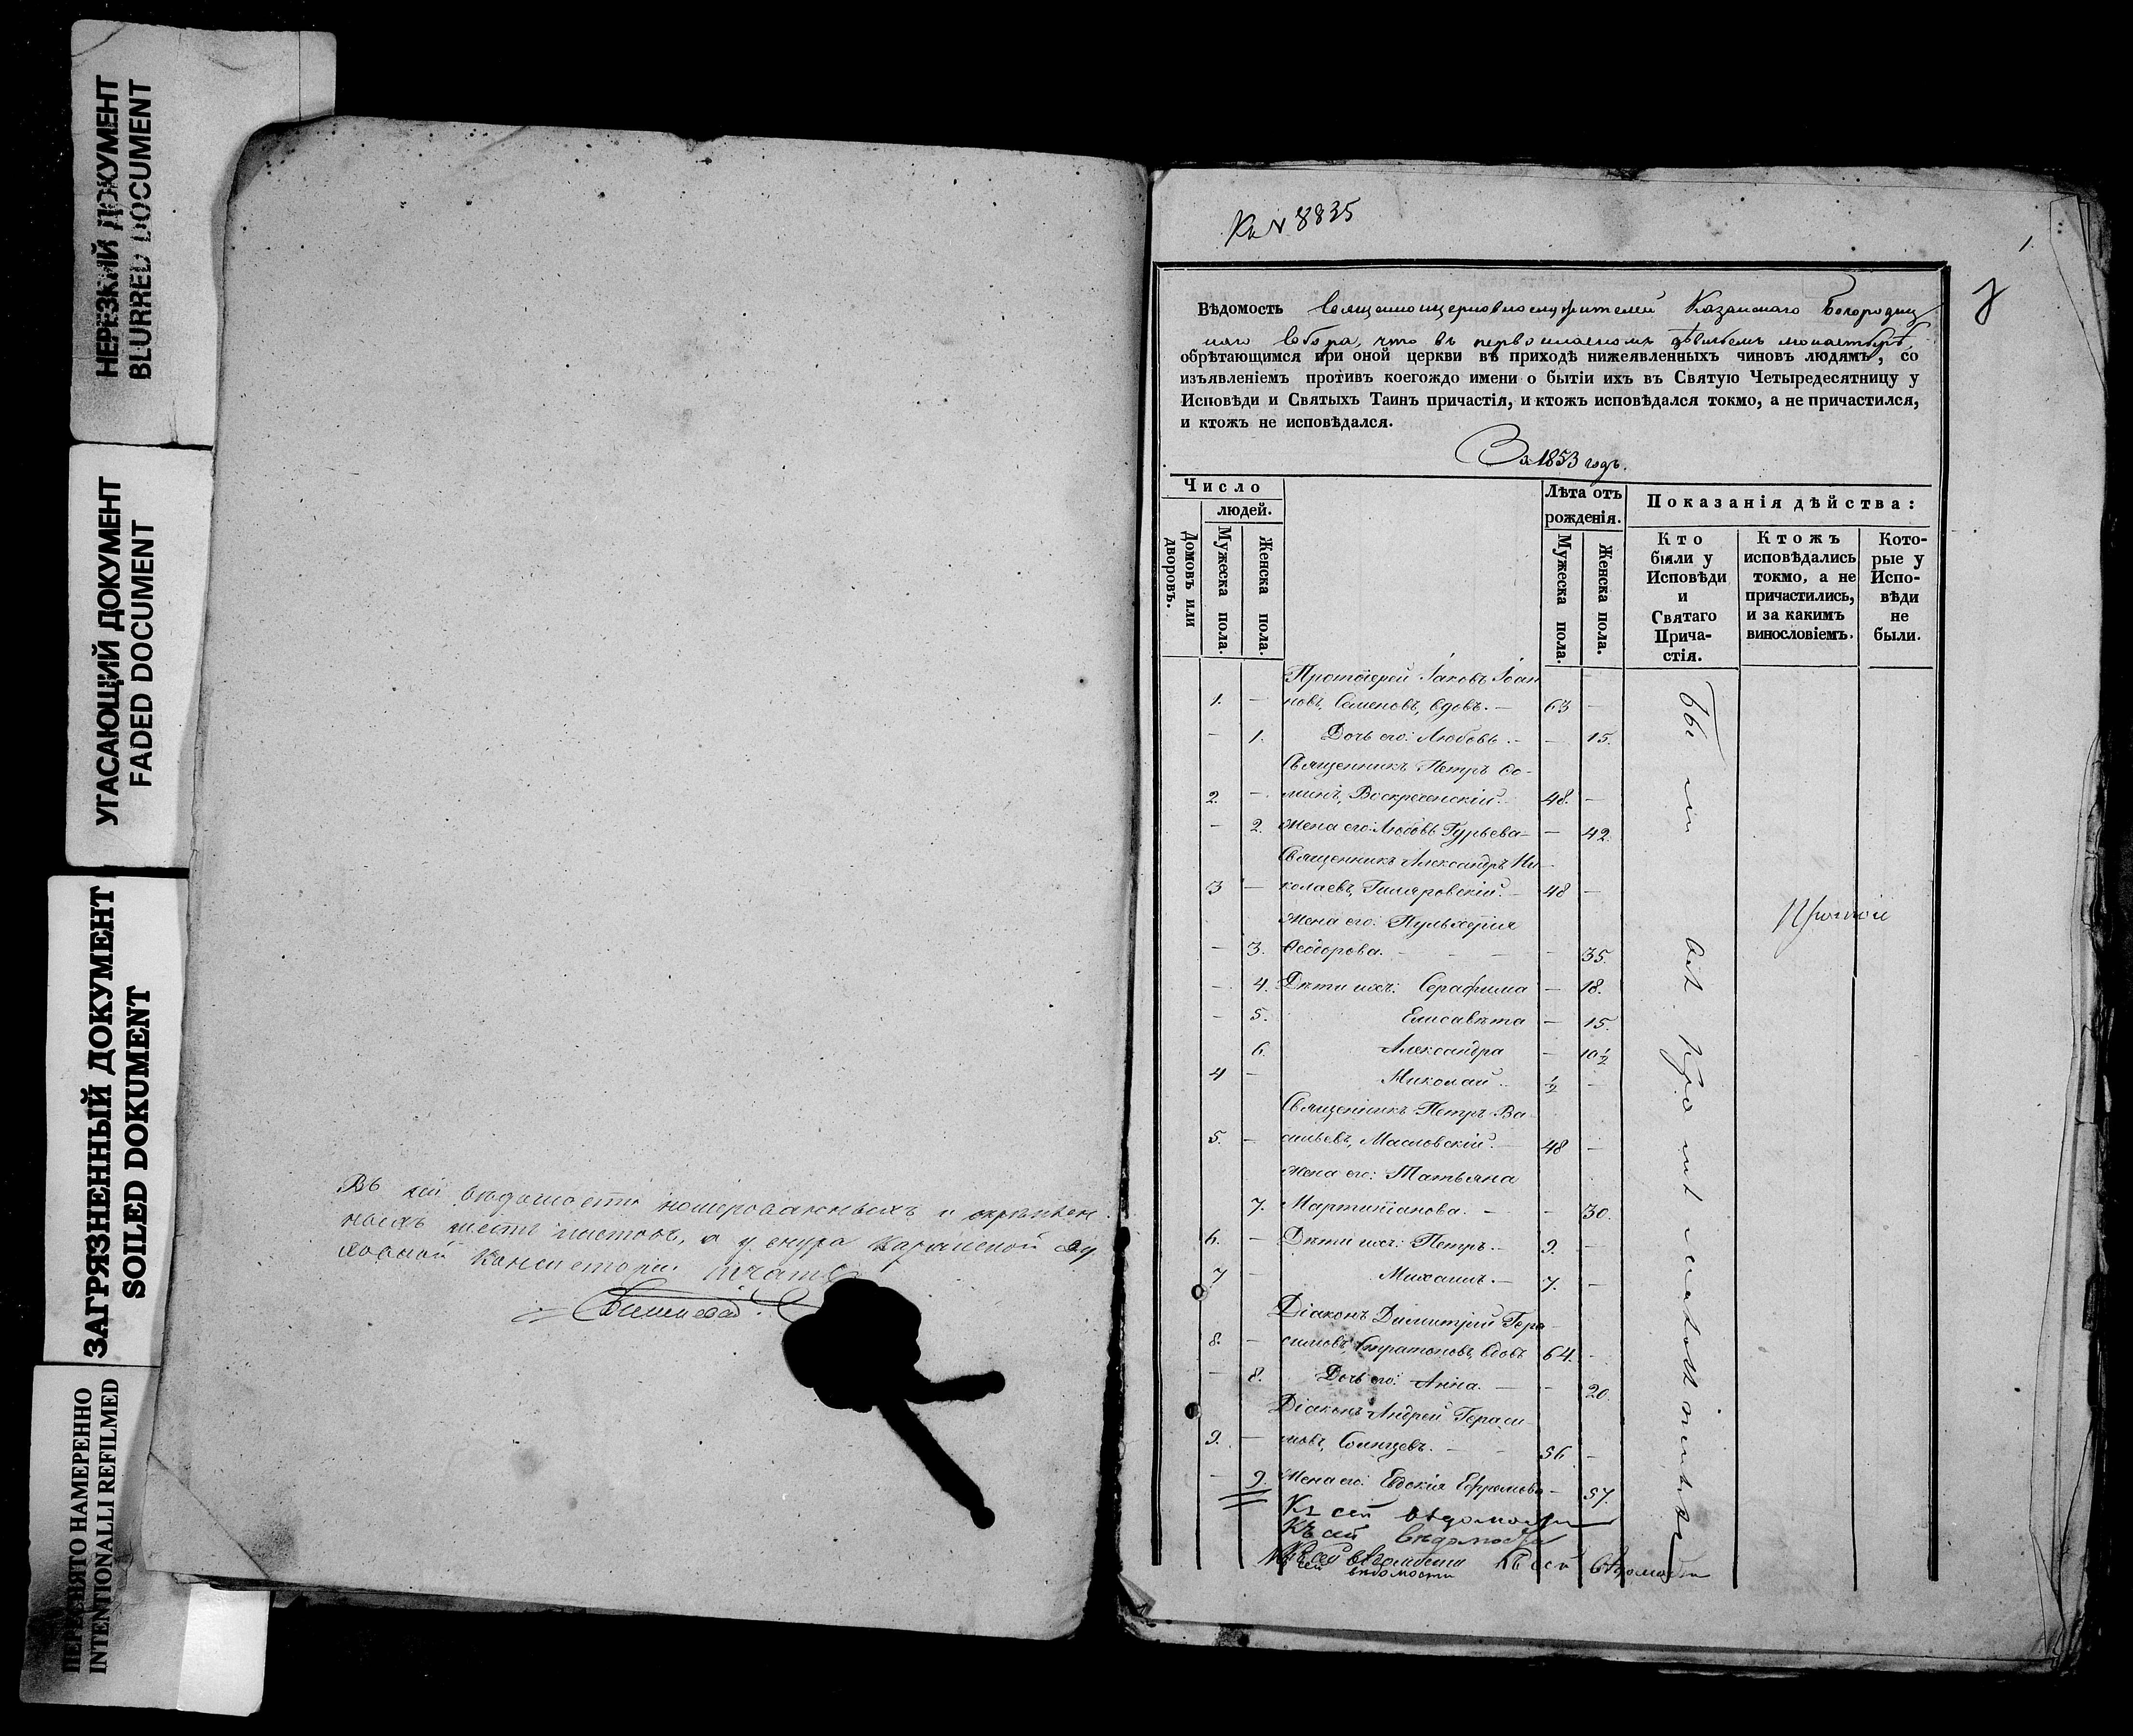 НЕРЕЗКИЙ ДОКУМЕНТ
BLURRED DOCUMENT
УГАСАЮЩИЙ ДОКУМЕНТ
FADED DOCUMENT
ЗАГРЯЗНЕННЫЙ ДОКУМЕНТ
SOILED DOKUMENT
ПЕРЕСНЯТО НАМЕРЕННО
INTENTIONALLI REFILMED
Въ сей ведомости номерованныхъ и скрѣплен
ныхъ шесть листовъ, а у снура Казанской Ду
ховной Консисторіи печать
Къ № 8835
1.
Вѣдомость Священноцерковнослужителей Казанскаго Богородиц
каго Собора, что въ первоклассномъ дѣвичьемъ монастырѣ,
обрѣтающимся при оной церкви въ приходѣ нижеявленныхъ чиновъ людямъ, со
изъявленіемъ противъ коегождо имени о бытіи ихъ въ Святую Четыредесятницу у
Исповѣди и Святыхъ Таинъ причастія, и ктожъ исповѣдался токмо, а не причастился,
и ктожъ не исповѣдался.
За 1853 годъ.
Число
людей.
Домовъ или дворовъ.
Мужеска пола.
Женска пола.
Лѣта отъ рожденія.
Мужеска пола.
Женска пола.
Показанія дѣйства:
Кто были у Исповѣди и Святаго Прича-стія.
Ктожъ исповѣдались токмо, а не причастились, и за какимъ винословіемъ.
Кото-рые у Испо-вѣди не были.
Протоіерей Іаковъ Іоан
1. — новъ, Семеновъ, вдовъ. — 63 —
— 1. Дочь его: Любовь. — — 15.
Священникъ Петръ Ѳо-
2. — минъ, Воскресенскій. 48. —
— 2. Жена его: Любовь Гурьева — — 42.
Священникъ Александръ Ни
3 — колаевъ, Гиляровскій. — 48 —
Жена его: Пульхерія
— 3. Ѳеодорова. — — — 35.
— 4. Дѣти ихъ: Серафима — 18.
— 5. Елисавѣта — 15.
6. Александра — 10 ½
4 — Николай. ½ —
Священникъ Петръ Ва
5. — сильевъ, Масловскій. — 48 —
Жена его: Татьяна
7. Мартиніанова. — — 30.
6. — Дѣти ихъ: Петръ. — 9. —
7 — Михаилъ. — 7. —
Діаконъ Димитрій Гера
8. — симовъ, Стратоновъ, вдовъ 64. —
— 8. Дочь его: Анна. — — 20.
Діаконъ Андрей Гераси
9. — мовъ, Солнцевъ. — — 56 —
— 9. Жена его: Евдокія Ефремова — 57.
Къ сей вѣдомости
Къ сей вѣдомости
Къ сей вѣдомости
Къ сей вѣдомости